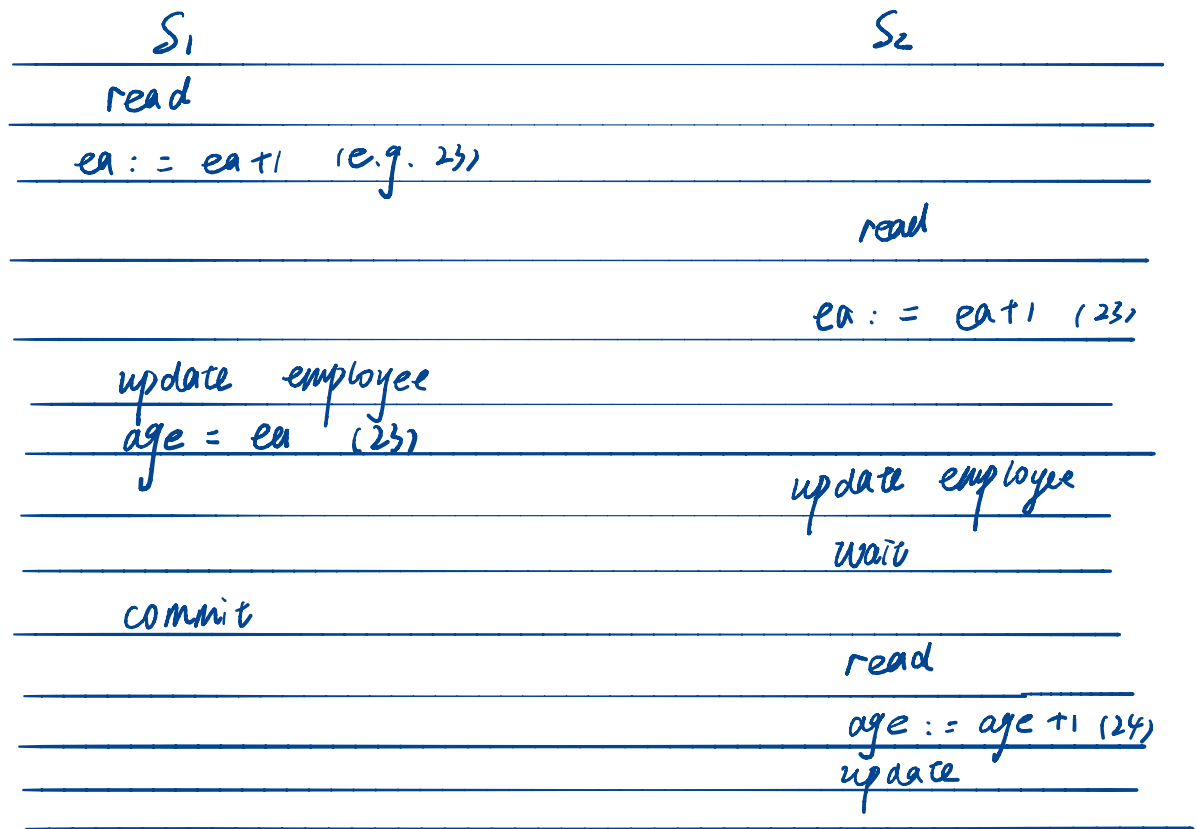 S1 S2
read
ea := ea+1 (e.g. 23)
read
ea := ea+1 (23)
update employee
age = ea (23)
update employee
wait
commit
read
age := age +1 (24)
update